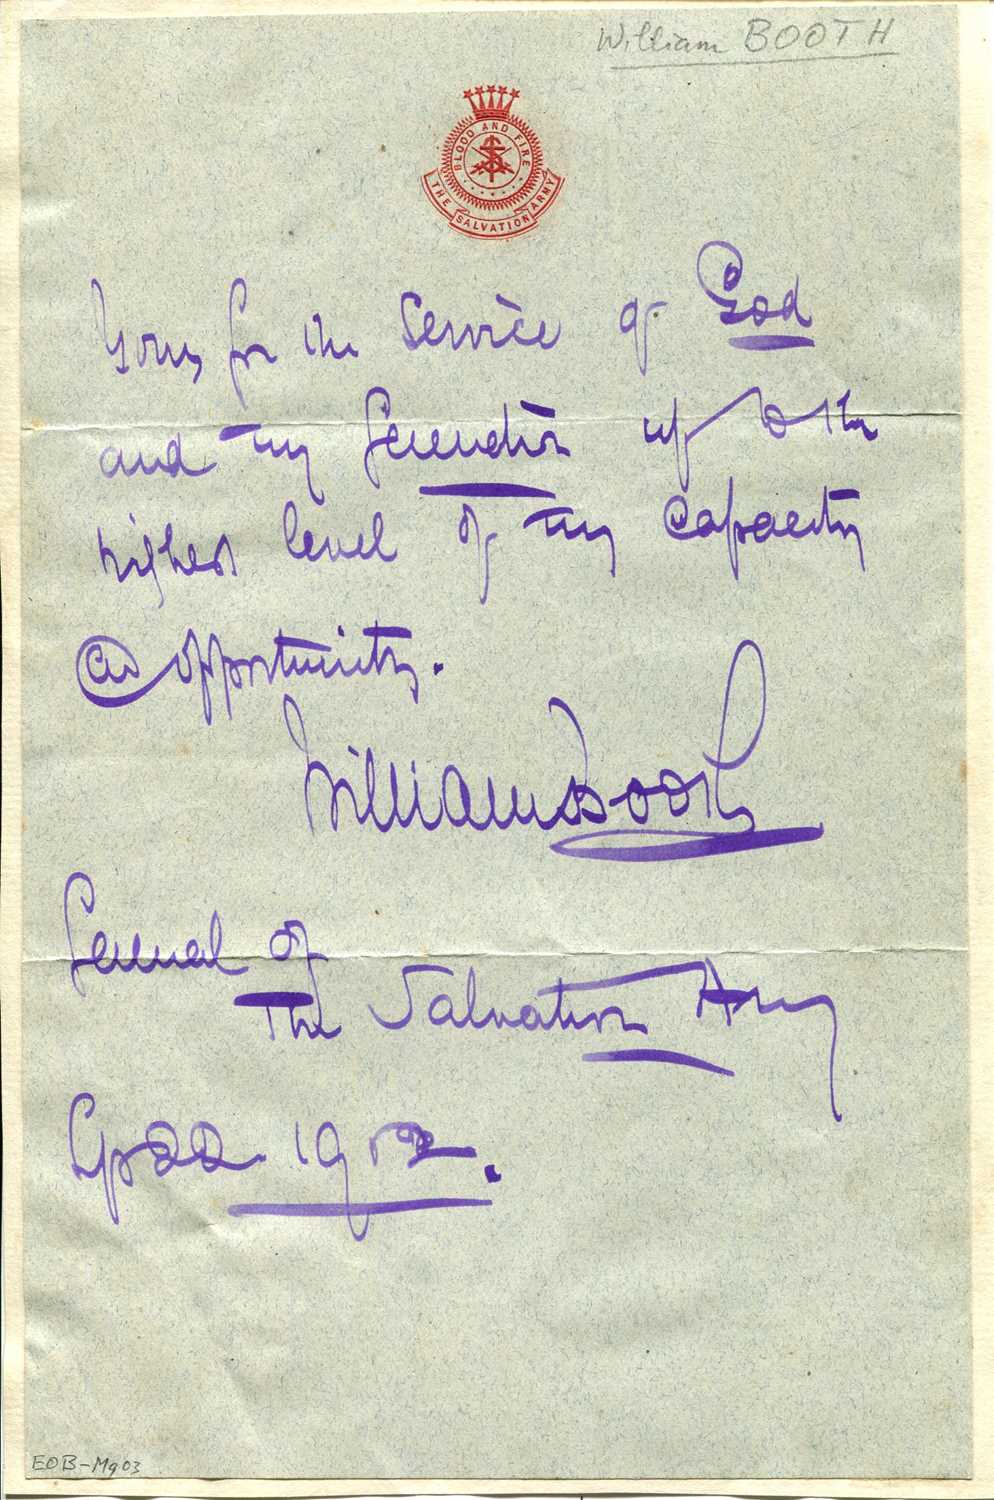 William BOOTH
BLOOD AND FIRE
THE SALVATION ARMY
Yours for the Service of God
and my Generation up to the
highest level of my capacity
& opportunity.
William Booth
General of
The Salvation Army
22 1902.
EOB-Mg03